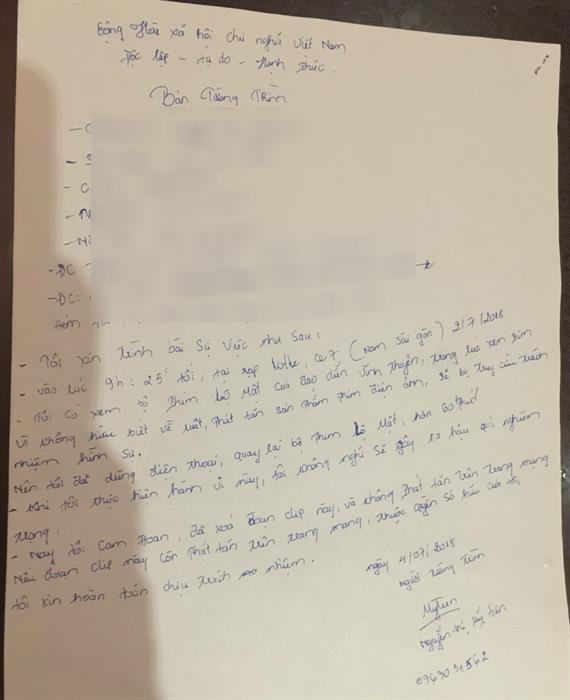 Cộng Hòa xã hội chủ nghĩa Việt Nam
Độc lập - tự do - Hạnh phúc.
Bản Tường Trình
- C
- S
- C
- N
- N
- ĐC
- ĐC:
- Tôi xin trình bài Sự Việc như Sau:
- vào lúc 9h: 25' tối, tại rạp lotte, Q7 (Nam Sài gòn) 2/7/2018
- Tôi có xem bộ phim Lộ Mặt của đạo diễn Vĩnh Thuyên, trong lúc xem phim
vì không hiểu biết về luật, phát tán sản phẩm phim điện ảnh, sẽ bị truy cứu trách
nhiệm hình sự.
Nên tôi đã dùng điện thoại, quay lại bộ phim Lộ Mặt, hơn 60 phút
- Khi tôi thực hiện hành vi này, tôi không nghĩ sẽ gây ra hậu quả nghiêm
trọng.
- Nay tôi Cam Đoan, đã xoá đoạn clip này, và không phát tán trên trang mạng
Nếu đoạn clip này còn phát tán trên trang mạng, thuộc quyền sở hữu của tôi,
tôi xin hoàn toàn chịu trách nhiệm.
ngày 4/07/2018
Người tường trình
Nguyễn thị Mỹ